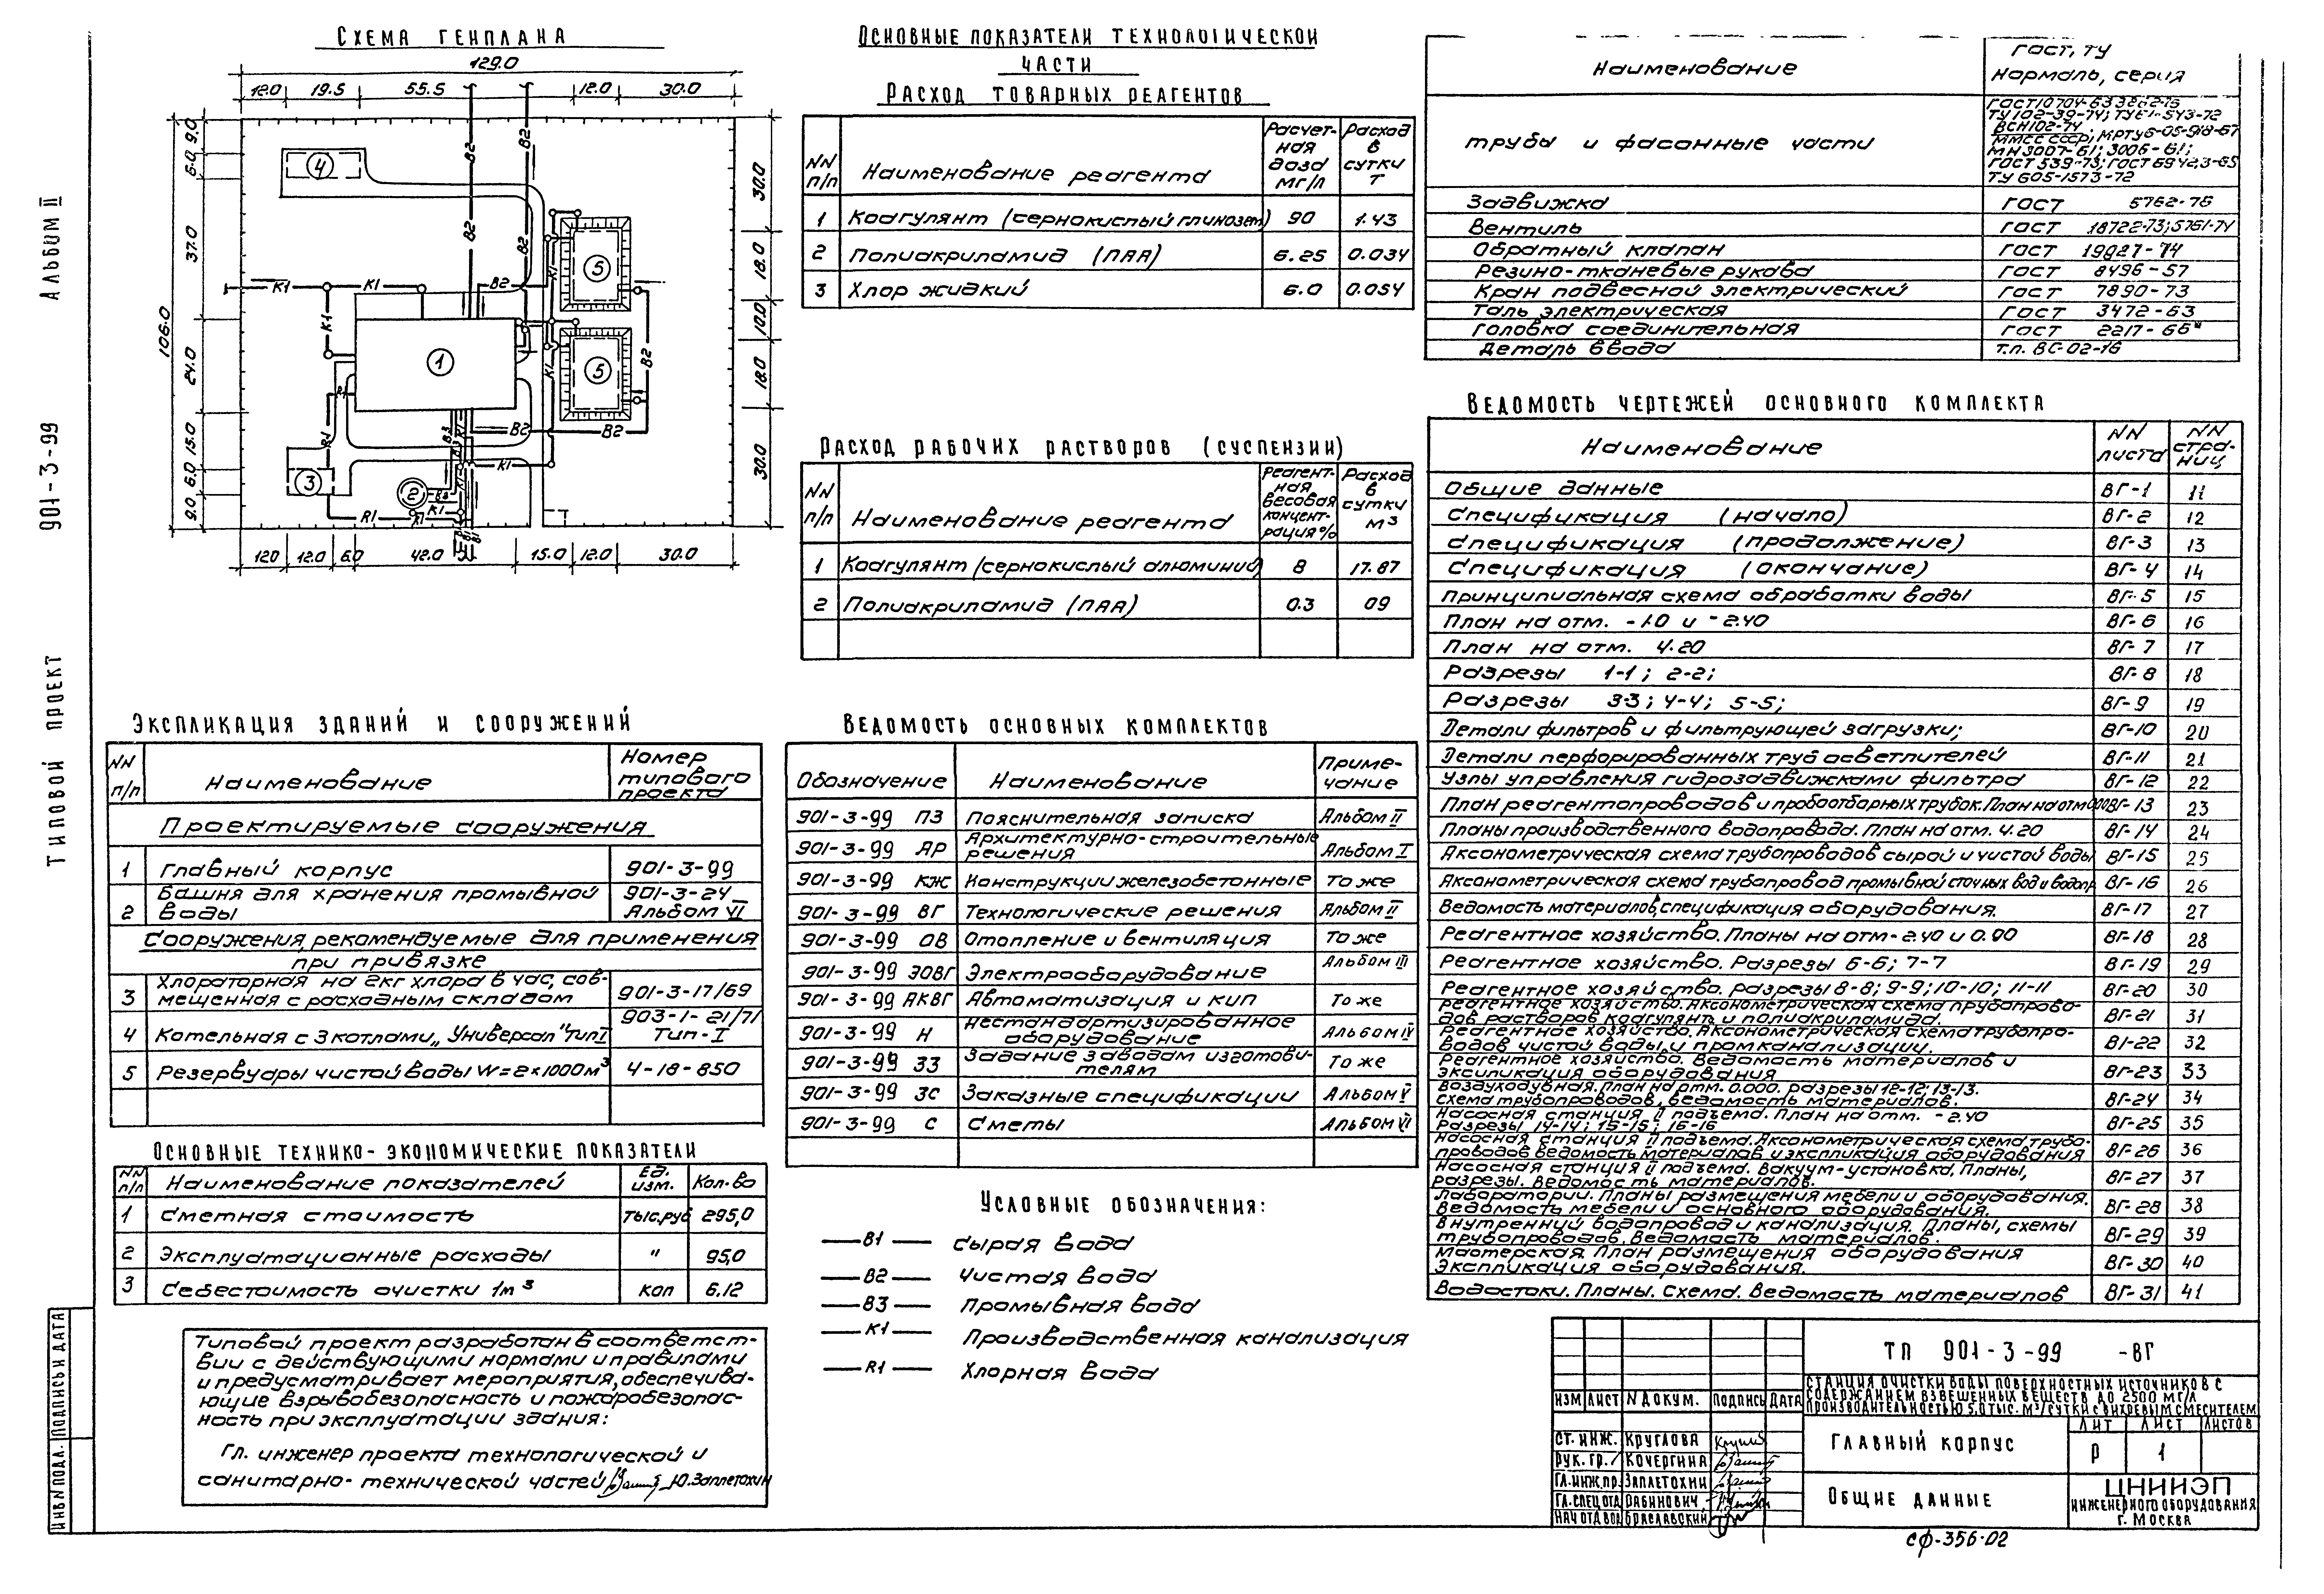 Альбом II
901-3-99
Типовой проект
Инв № подл. Подпись и дата
Схема генплана
129.0
12.0 19.5 55.5 12.0 30.0
106.0
9.0 6.0 37.0 24.0 15.0 6.0 9.0
30.0 18.0 10.0 18.0 30.0
120 12.0 6.0 42.0 15.0 12.0 30.0
4
5
5
1
3
2
В2 В2 В2 В2 В2 В2 В2 В2
К1 К1 К1 К1 К1 К1 К1
В3 R1 R1 R1
Основные показатели технологической
части
Расход товарных реагентов
NN п/п
Наименование реагента
Расчетная доза мг/л
Расход в сутки т
1 Коагулянт (сернокислый глинозем) 90 1.43
2 Полиакриламид (ПАА) 6.25 0.034
3 Хлор жидкий 6.0 0.054
Расход рабочих растворов (суспензии)
NN п/п
Наименование реагента
Реагентная весовая концентрация %
Расход в сутки м³
1 Коагулянт (сернокислый алюминий) 8 17.87
2 Полиакриламид (ПАА) 0.3 09
Наименование
ГОСТ, ТУ
Нормаль, серия
Трубы и фасонные части
ТУ102-39-74; ТУ61-543-72
ВСН102-74
ММСС СССР; МРТУ6-05-918-67
МН3007-61; 3006-61;
ГОСТ 539-73; ГОСТ 6942,3-65
ТУ 605-1573-72
Задвижка ГОСТ 5762-76
Вентиль ГОСТ 18722-73; 5761-74
Обратный клапан ГОСТ 19827-74
Резино-тканевые рукава ГОСТ 8496-57
Кран подвесной электрический ГОСТ 7890-73
Таль электрическая ГОСТ 3472-63
Головка соединительная ГОСТ 2217-66*
Деталь ввода т.п. ВС-02-16
Ведомость чертежей основного комплекта
Наименование NN листа NN страниц
Общие данные ВГ-1 11
Спецификация (начало) ВГ-2 12
Спецификация (продолжение) ВГ-3 13
Спецификация (окончание) ВГ-4 14
Принципиальная схема обработки воды ВГ-5 15
План на отм. -1.0 и -2.40 ВГ-6 16
План на отм. 4.20 ВГ-7 17
Разрезы 1-1; 2-2; ВГ-8 18
Разрезы 3-3; 4-4; 5-5; ВГ-9 19
Детали фильтров и фильтрующей загрузки; ВГ-10 20
Детали перфорированных труб осветлителей ВГ-11 21
Узлы управления гидрозадвижками фильтра ВГ-12 22
План реагентопроводов и пробоотборных трубок. План на отм 0.00 ВГ-13 23
Планы производственного водопровода. План на отм. 4.20 ВГ-14 24
Аксонометрическая схема трубопроводов сырой и чистой воды ВГ-15 25
Аксонометрическая схема трубопровод промывной сточных вод и водопр ВГ-16 26
Ведомость материалов, спецификация оборудования. ВГ-17 27
Реагентное хозяйство. Планы на отм-2.40 и 0.00 ВГ-18 28
Реагентное хозяйство. Разрезы 6-6; 7-7 ВГ-19 29
Реагентное хозяйство. разрезы 8-8; 9-9; 10-10; 11-11 ВГ-20 30
Реагентное хозяйство. Аксонометрическая схема трубопрово-
дов растворов коагулянт и полиакриламида. ВГ-21 31
Реагентное хозяйство. Аксонометрическая схема трубопро-
водов чистой воды, и промканализации. ВГ-22 32
Реагентное хозяйство. Ведомость материалов и
эксипликация оборудования ВГ-23 33
Воздуходувная. План на отм. 0.000. разрезы 12-12; 13-13.
Схема трубопроводов, ведомость материалов. ВГ-24 34
Насосная станция II подъема. План на отм. -2.40
Разрезы 14-14; 15-15; 16-16 ВГ-25 35
Насосная станция II подъема. Аксонометрическая схема трубо-
проводов ведомость материалов и экспликация оборудования ВГ-26 36
Насосная станция II подъема. Вакуум-установка. Планы,
разрезы. Ведомость материалов. ВГ-27 37
Лаборатории. Планы размещения мебели и оборудования.
Ведомость мебели и основного оборудования. ВГ-28 38
Внутренний водопровод и канализация. Планы, схемы
трубопроводов. Ведомость материалов. ВГ-29 39
Мастерская. План размещения оборудования
Экспликация оборудования. ВГ-30 40
Водостоки. Планы. Схема. Ведомость материалов ВГ-31 41
Экспликация зданий и сооружений
NN п/п
Наименование
Номер типового проекта
Проектируемые сооружения
1 Главный корпус 901-3-99
2 Башня для хранения промывной воды 901-3-24 Альбом VI
Сооружения, рекомендуемые для применения
при привязке
3 Хлораторная на 2кг хлора в час, сов-
мещенная с расходным складом 901-3-17/69
4 Котельная с 3 котлами „Универсал" Тип I 903-1-21/71 Тип-I
5 Резервуары чистой воды W=2×1000м³ 4-18-850
Основные технико-экономические показатели
NN п/п Наименование показателей Ед. изм. Кол-во
1 Сметная стоимость тыс.руб 295,0
2 Эксплуатационные расходы " 95,0
3 Себестоимость очистки 1м³ коп 6.12
Типовой проект разработан в соответст-
вии с действующими нормами и правилами
и предусматривает мероприятия, обеспечива-
ющие взрывобезопасность и пожаробезопас-
ность при эксплуатации здания:
Гл. инженер проекта технологической и
санитарно-технической частей Ю. Заплетохин
Ведомость основных комплектов
Обозначение Наименование Примечание
901-3-99 ПЗ Пояснительная записка Альбом II
901-3-99 АР Архитектурно-строительные решения Альбом I
901-3-99 КЖ Конструкции железобетонные То же
901-3-99 ВГ Технологические решения Альбом II
901-3-99 ОВ Отопление и вентиляция То же
901-3-99 ЭОВГ Электрооборудование Альбом III
901-3-99 АКВГ Автоматизация и кип То же
901-3-99 Н Нестандартизированное оборудование Альбом IV
901-3-99 ЗЗ Задание заводам изготови-
телям То же
901-3-99 ЗС Заказные спецификации Альбом V
901-3-99 С Сметы Альбом VI
Условные обозначения:
В1 Сырая вода
В2 Чистая вода
В3 Промывная вода
К1 Производственная канализация
R1 Хлорная вода
ТП 901-3-99 -ВГ
Станция очистки воды поверхностных источников с
содержанием взвешенных веществ до 2500 мг/л
производительностью 5,0 тыс. м³/сутки с вихревым смесителем
Изм Лист № докум. Подпись Дата
Ст. инж. Круглова
Рук. гр. Кочергина
Гл. инж. пр. Заплетохин
Гл. спец отд Рабинович
Нач отд во Браславский
Главный корпус
Лит Лист Листов
Р 1
Общие данные
ЦНИИЭП
инженерного оборудования
г. Москва
сф-356-02